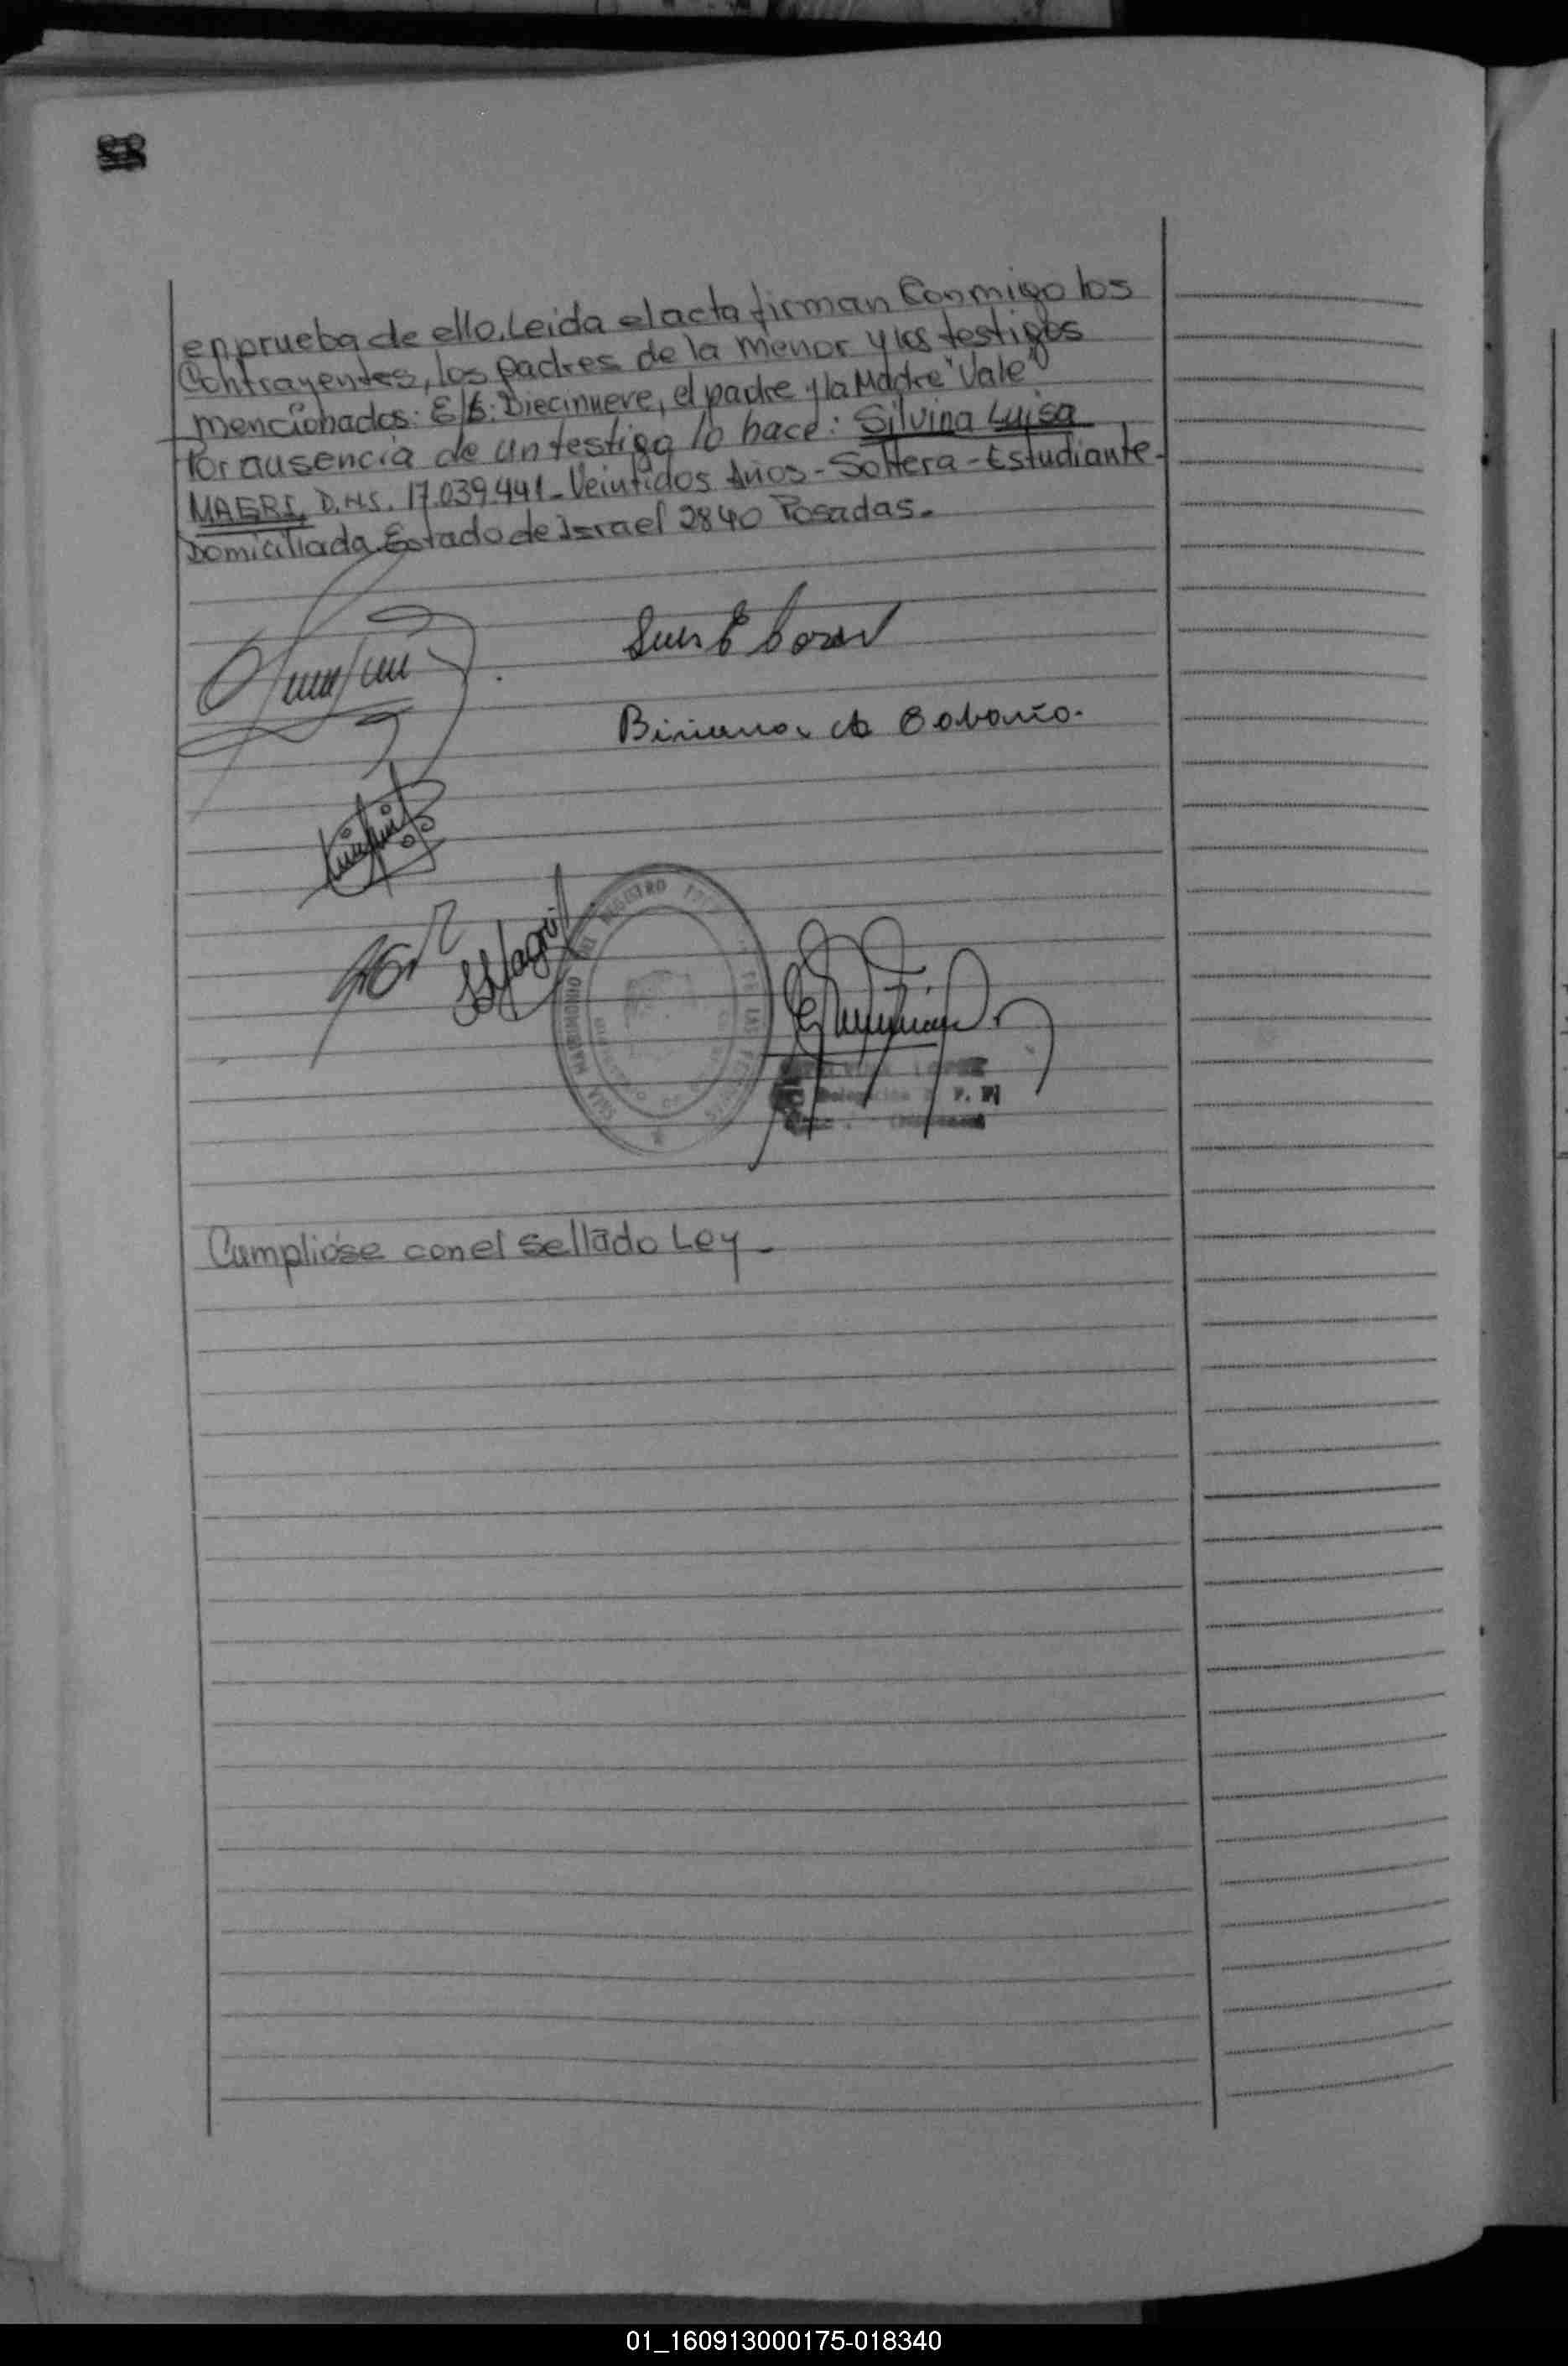 88
en prueba de ello. Leida el acta firman Conmigo los
Contrayentes, los padres de la menor y los testigos
mencionados: E/L: Diecinueve, el padre y la Madre "Vale"
Por ausencia de un testigo lo hace: Silvina Luisa
MAGRI, D.N.I. 17.039.441 - Veintidos Años - Soltera - Estudiante -
Domiciliada Estado de Israel 2840 Posadas.
REGISTRO
MATRIMONIO
DE LAS PERSONAS
LOPEZ
Delegación
Cumpliose con el sellado Ley -
01_160913000175-018340